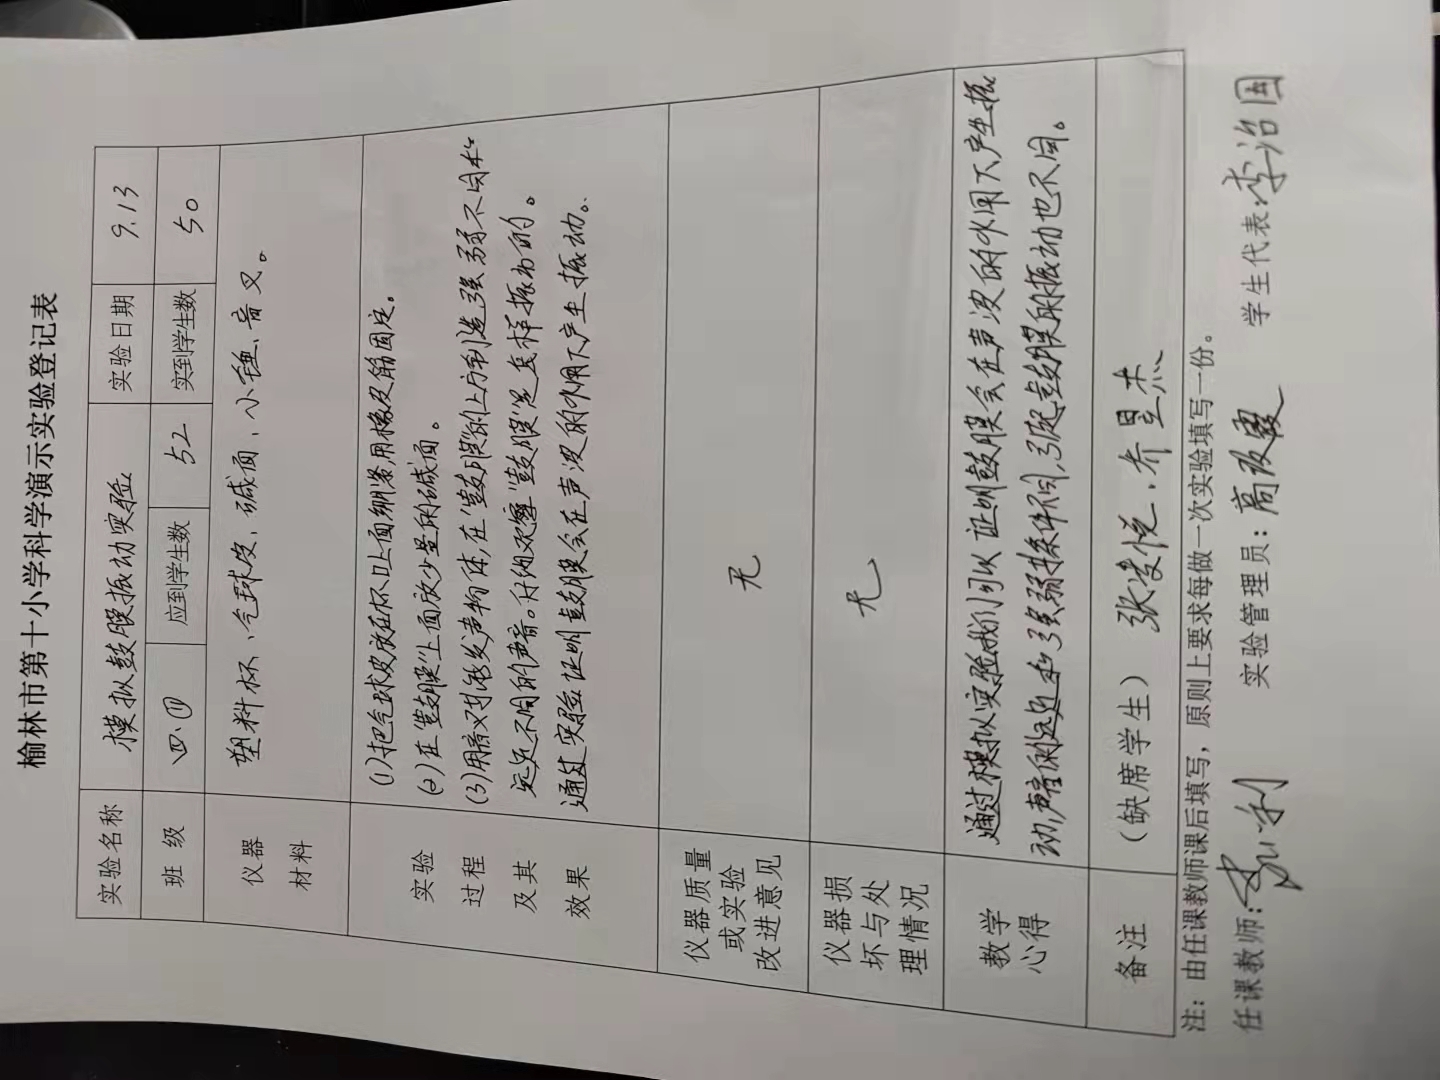 榆林市第十小学科学演示实验登记表
实验名称 模拟鼓膜振动实验 实验日期 9.13
班 级 四.(1) 应到学生数 52 实到学生数 50
仪器
材料
塑料杯、气球皮,碱面,小锤、音叉。
实验
过程
及其
效果
(1)把气球皮放在杯口上面绷紧,用橡皮筋固定。
(2)在"鼓膜"上面放少量的碱面。
(3)用音叉引起发声物体,在"鼓膜"的上方制造强弱不同和
远近不同的声音。仔细观察"鼓膜"是怎样振动的。
通过实验证明鼓膜会在声波的作用下产生振动。
仪器质量
或实验
改进意见
无
仪器损
坏与处
理情况
无
教学
心得
通过模拟实验我们可以证明鼓膜会在声波的作用下产生振
动,声音的远近和强弱条件不同,引起鼓膜的振动也不同。
备注 (缺席学生) 张凌悦、乔昱杰
注:由任课教师课后填写,原则上要求每做一次实验填写一份。
任课教师: 实验管理员:高改霞 学生代表:李治国